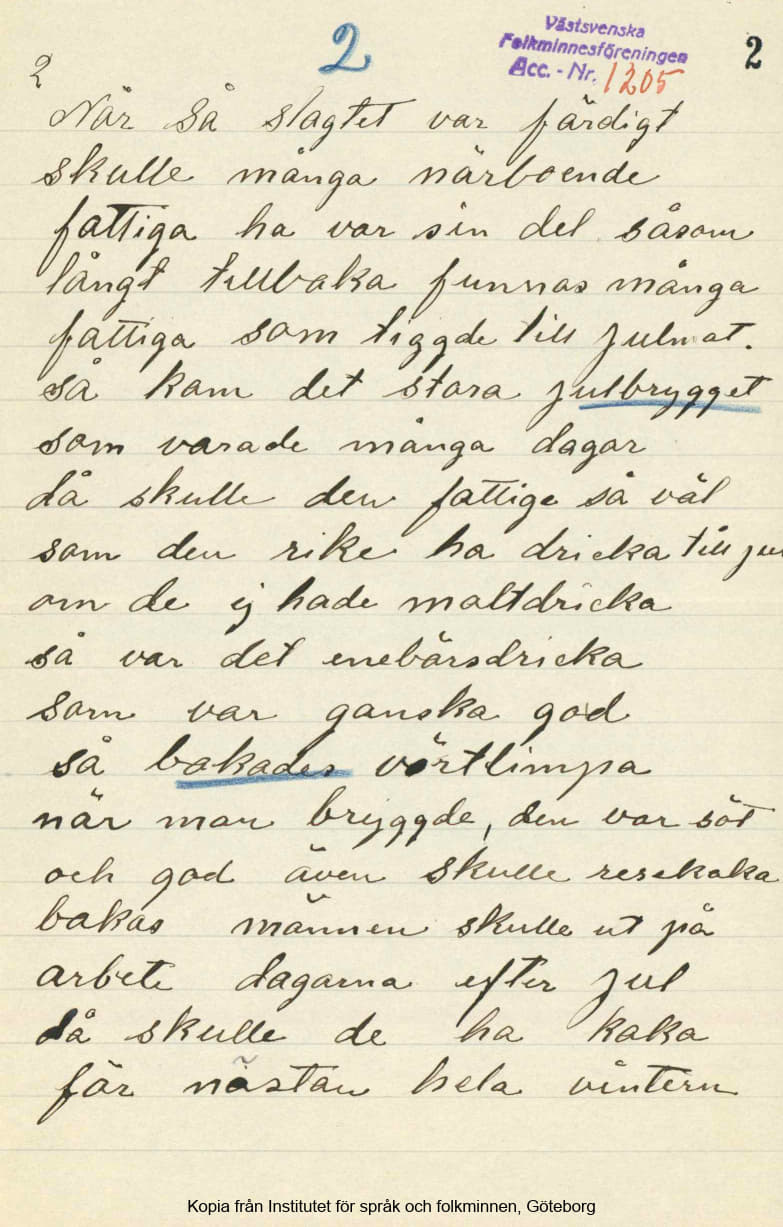 2
2
Västsvenska
Folkminnesföreningen
Acc. - Nr. 1205
2
När så slagtet var färdigt
skulle många närboende
fattiga ha var sin del såsom
långt tillbaka funnas många
fattiga som tiggde till julmat.
så kam det stora julbrygget
som varade många dagar
då skulle den fattige så väl
som den rike ha dricka till jul
om de ej hade maltdricka
så var det enebärsdricka
som var ganska god
så bakades vörtlimpa
när man bryggde, den var söt
och god även skulle resekaka
bakas männen skulle ut på
arbete dagarna efter jul
då skulle de ha kaka
för nästan hela vintern
Kopia från Institutet för språk och folkminnen, Göteborg